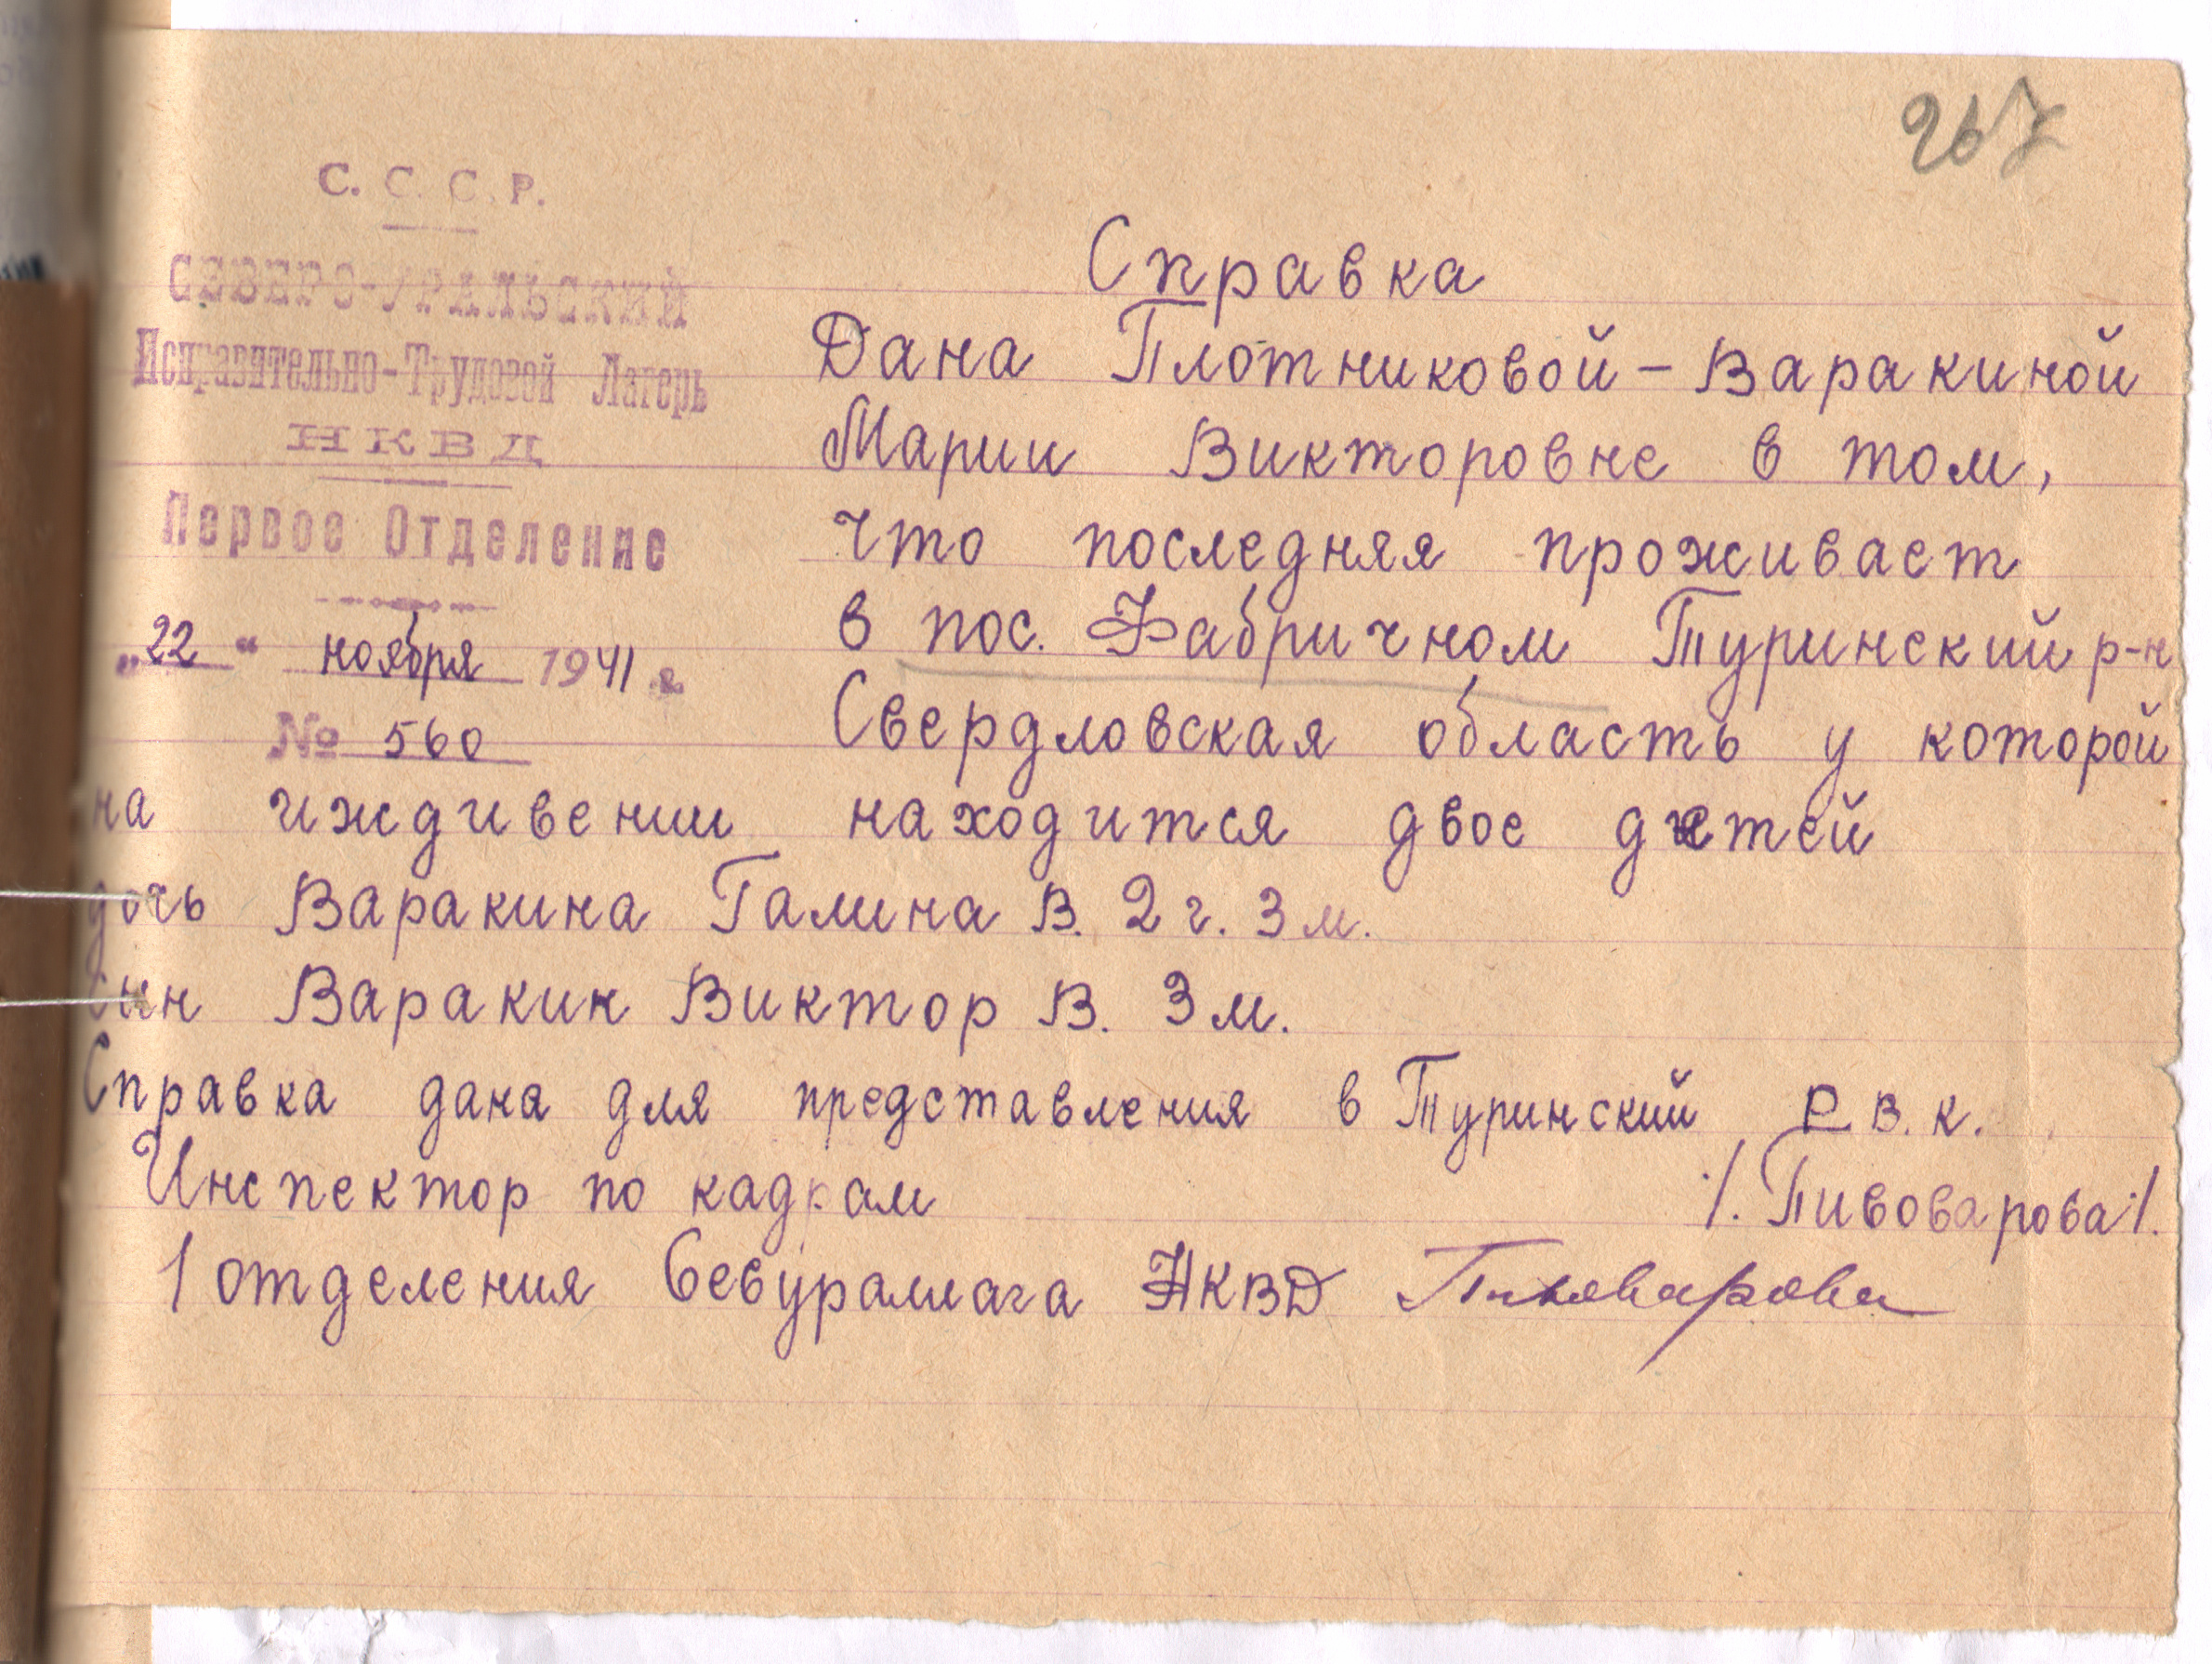 267
С. С. С. Р.
СЕВЕРО-УРАЛЬСКИЙ
Исправительно-Трудовой Лагерь
НКВД
Первое Отделение
„22" ноября 1941 г.
№ 560
Справка
Дана Плотниковой - Варакиной
Марии Викторовне в том,
что последняя проживает
в пос. Фабричном Туринский р-н
Свердловская область у которой
на иждивении находится двое детей
дочь Варакина Галина В. 2 г. 3 м.
сын Варакин Виктор В. 3 м.
Справка дана для представления в Туринский Р.В.К.
Инспектор по кадрам /. Пивоварова /.
1 отделения Севураллага НКВД Пивоварова